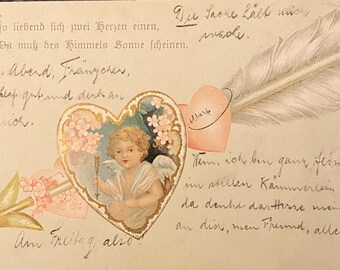 Wo liebend sich zwei Herzen einen,
Da muß des Himmels Sonne scheinen.
Die Sache hält mich
wach.
. Abend, Fränzchen,
gut und denk an
mich.
Albert
Wenn ich bin ganz
im stillen Kämmerlein
da denkt das Herze mein
an dich, mein Freund, allein
Am Freitag, also!